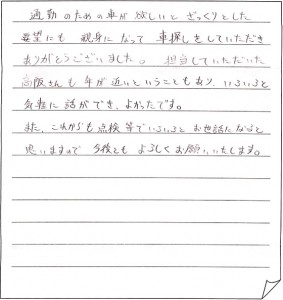 通勤のための車が欲しいと ざっくりとした
要望にも 親身になって 車探しをしていただき
ありがとうございました。 担当していただいた
高阪さんも 年が近いということもあり、いろいろと
気軽に話ができ、よかったです。
また、これからも点検等でいろいろと お世話になると
思いますので 今後とも よろしくお願いいたします。